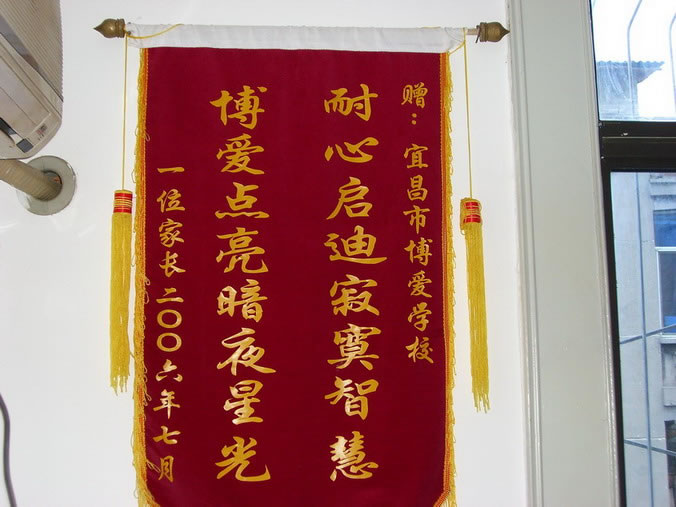 赠：宜昌市博爱学校
耐心启迪寂寞智慧
博爱点亮暗夜星光
一位家长二〇〇六年七月